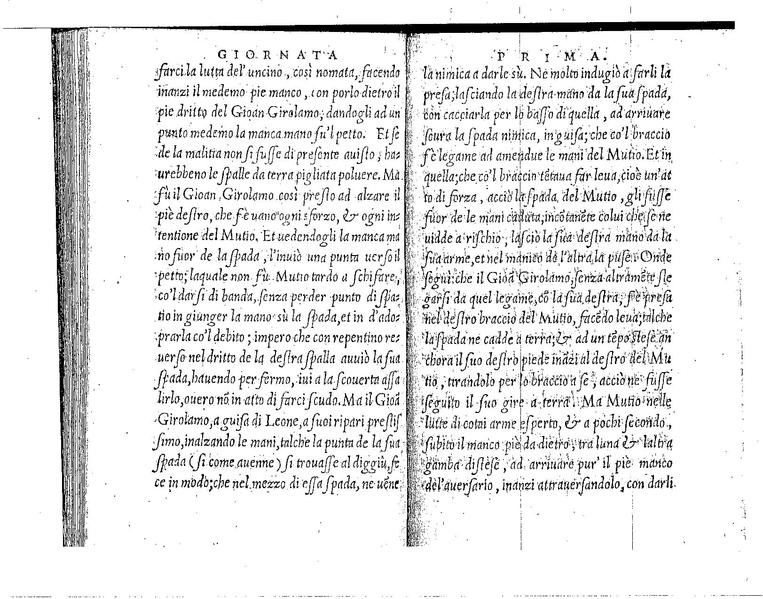 GIORNATA
farci la lutta del' uncino, così nomata, facendo
inanzi il medemo pie manco, con porlo dietro il
pie dritto del Gioan Girolamo, dandogli ad un
punto medemo la manca mano su'l petto. Et se
de la malitia non si fusse di presente auisto, ha-
urebbeno le spalle da terra pigliata poluere. Ma
fu il Gioan Girolamo così presto ad alzare il
piè destro, che fè uano ogni sforzo, & ogni in-
tentione del Mutio. Et uedendogli la manca ma
no fuor de la spada, l'inuiò una punta uerso il
petto; laquale non fu Mutio tardo a schifare,
co'l darsi di banda, senza perder punto di spa-
tio in giunger la mano sù la spada, et in d'ado-
prarla co'l debito; impero che con repentino re-
uerso nel dritto de la destra spalla auuiò la sua
spada, hauendo per fermo, iui a la scouerta assa
lirlo, ouero nō in atto di farci scudo. Ma il Gioā
Girolamo, a guisa di Leone, a suoi ripari prestis
simo, inalzando le mani, talche la punta de la sua
spada (si come auenne) si trouasse al diggiù, fe
ce in modo; che nel mezzo di essa spada, ne uēne
PRIMA.
la nimica a darle sù. Ne molto indugiò a farli la
presa; lasciando la destra mano da la sua spada,
con cacciarla per lo basso di quella, ad arriuare
soura la spada nimica, in guisa; che co'l braccio
fè legame ad amendue le mani del Mutio. Et in
quella; che co'l braccio tētaua far leua, cioè un'at
to di forza, acciò la spada del Mutio, gli fusse
fuor de le mani caduta; incōtanēte colui che se ne
uidde a rischio, lasciò la sua destra mano da la
sua arme, et nel manico dè l'altra la puse. Onde
seguì: che il Gioā Girolamo, senza altramēte sle
garsi da quel legame, cō la sua destra; fè presa
nel destro braccio del Mutio, facēdo leua; talche
la spada ne cadde a terra; & ad un tēpo stese an
chora il suo destro piede inãzi al destro del Mu
tio, tirandolo per lo braccio a se, acciò ne fusse
seguito il suo gire a terra. Ma Mutio nelle
lutte di cotai arme esperto, & a pochi secondo,
subito il manco piè da dietro, tra luna & laltra
gamba distese, ad arriuare pur' il piè manco
del'auersario, inanzi attrauersandolo, con darli